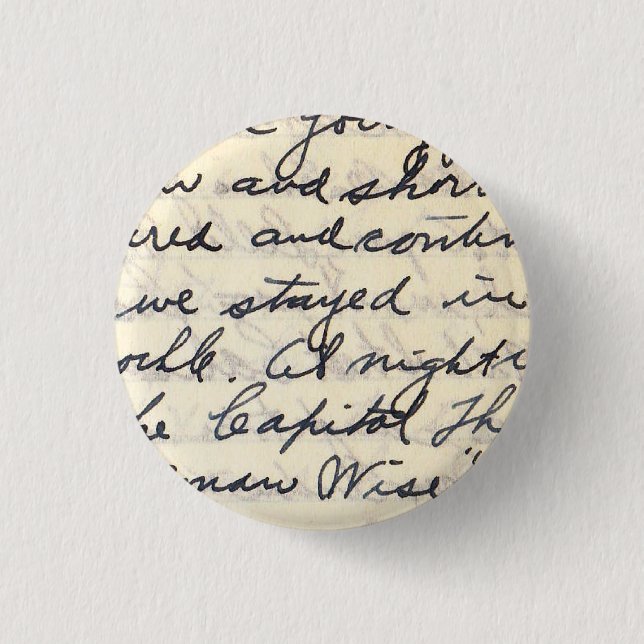 and shor
ired and contin
we stayed in
At night
he Capitol Th
man Wise"